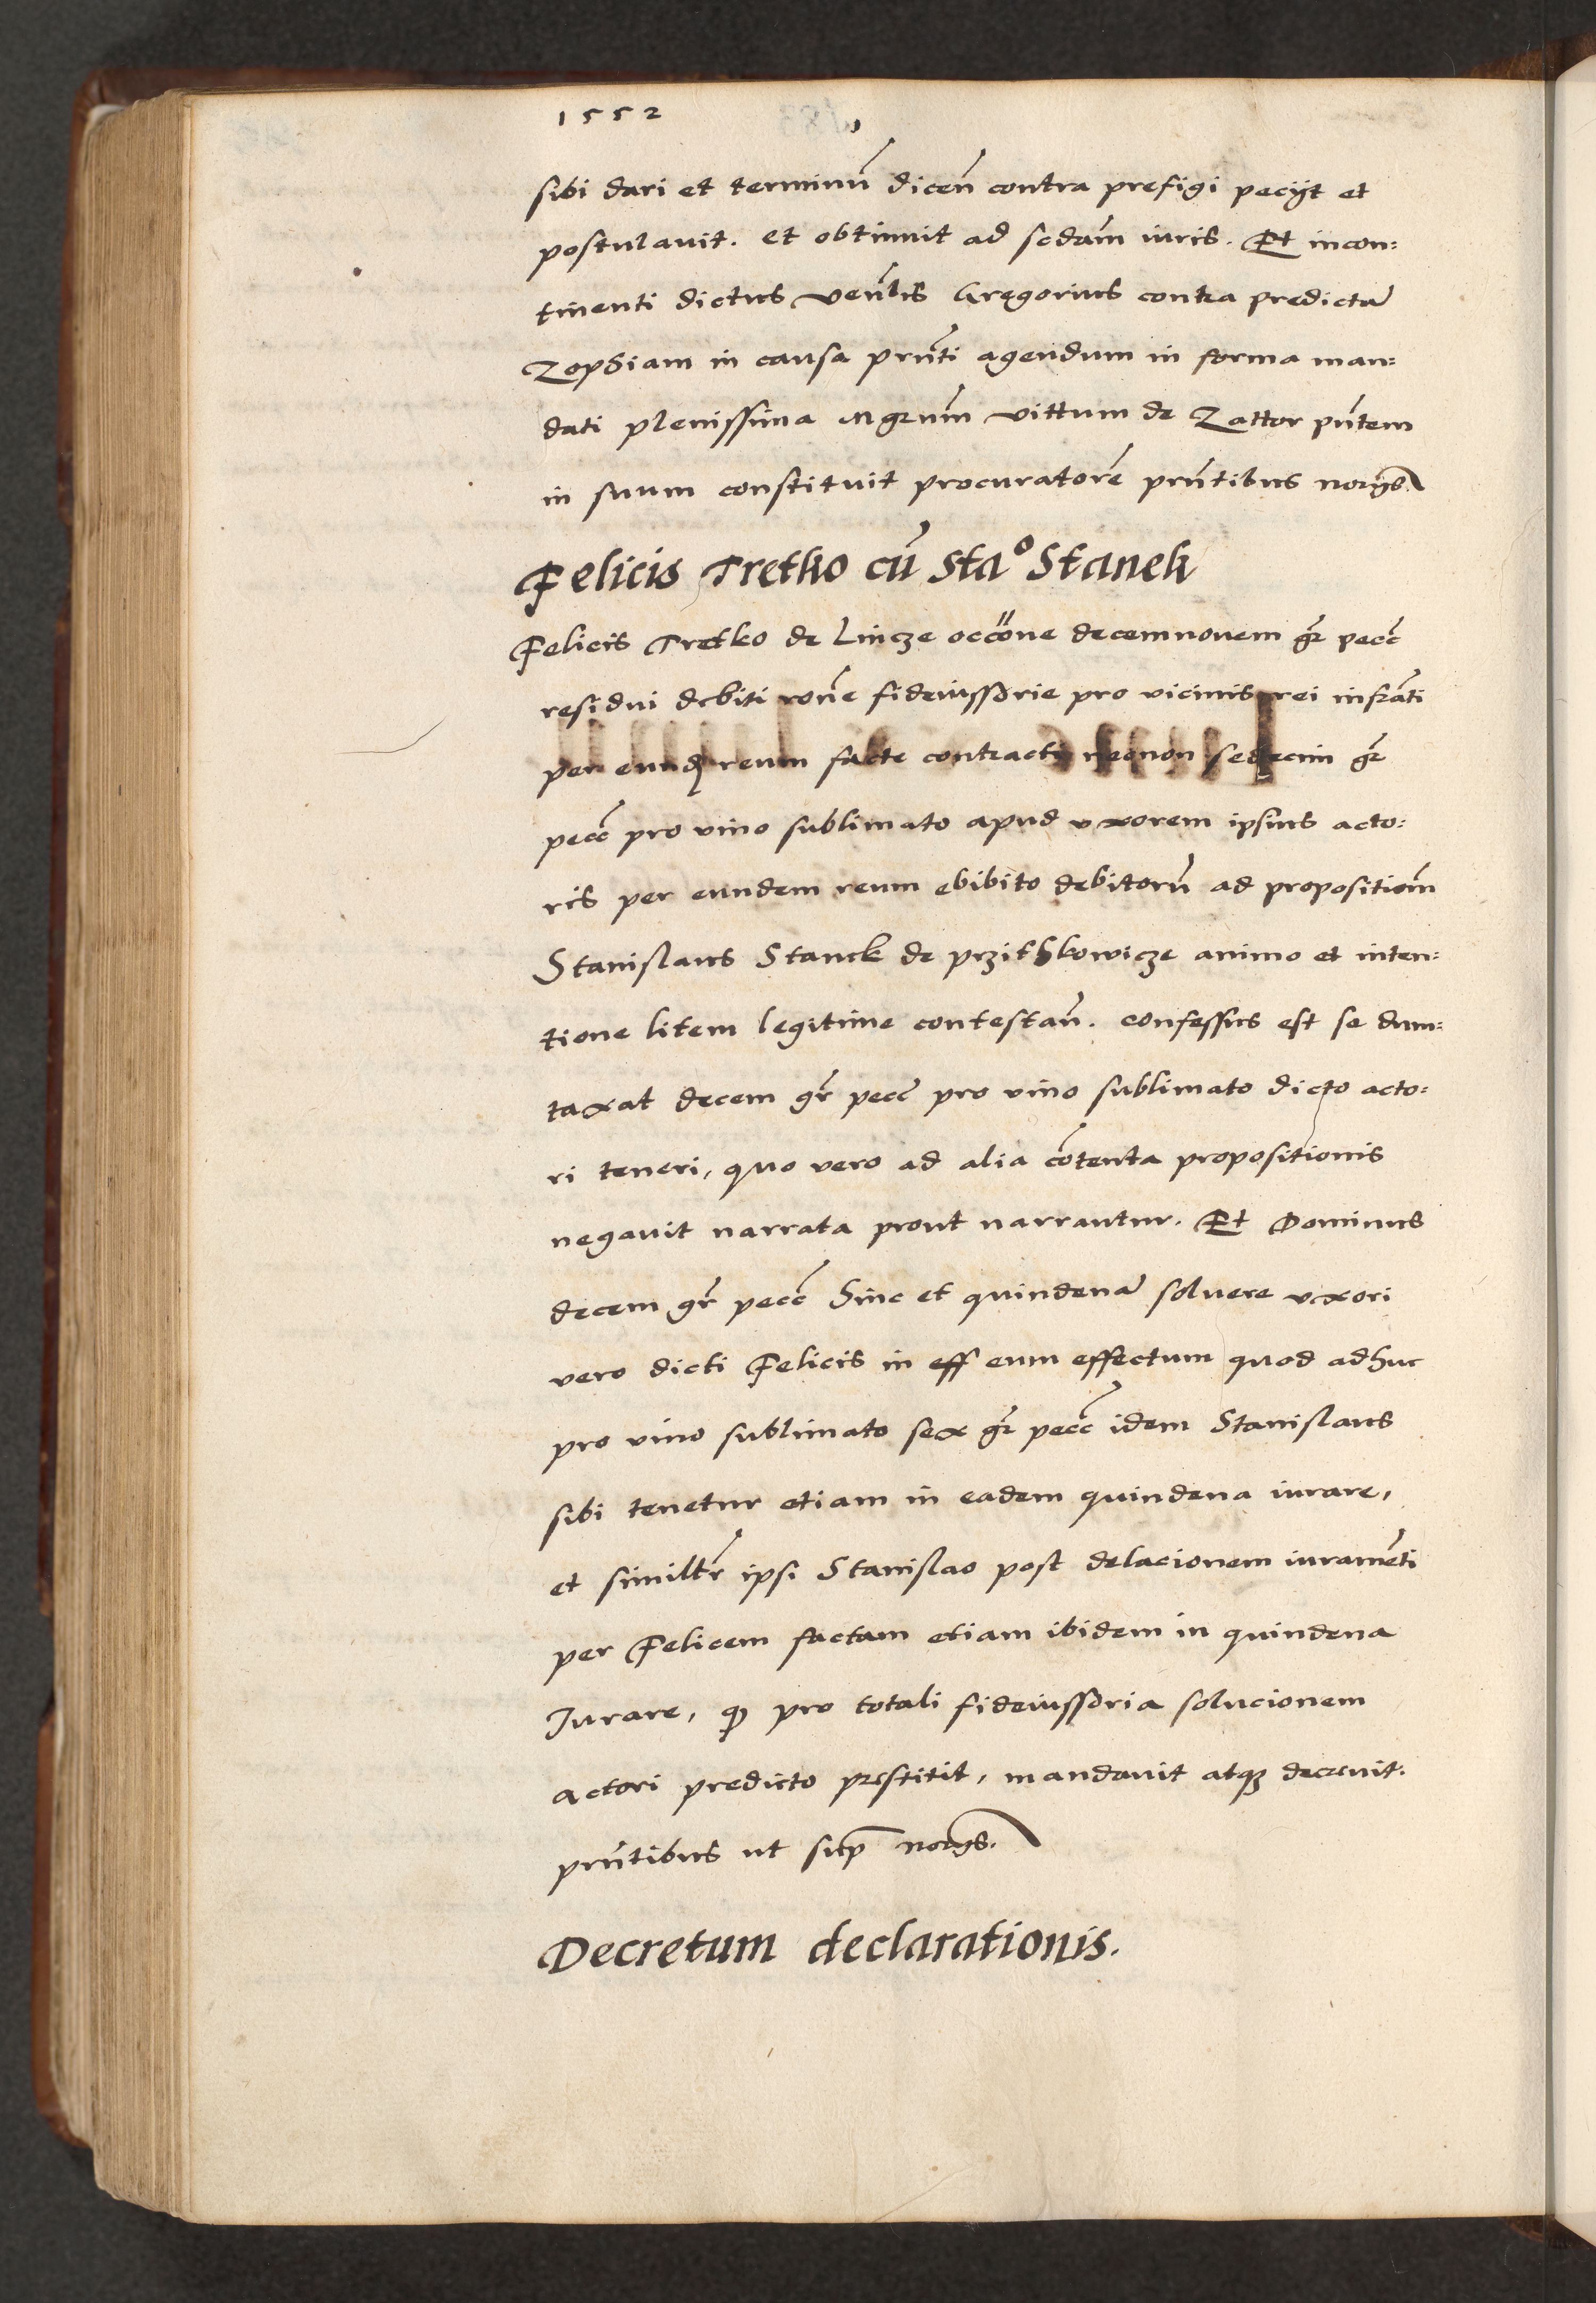 1552
sibi dari et terminū dicen̄ contra prefigi peciit et
postulavit. et obtinuit ad sedam̄ iuris. Et incon:
tinenti dictus ven̄lis Gregorius contra predictā
Zophiam in causa pn̄ti agendum in forma man:
dati plenissima Mgrum̄ Vittum de Zattor pn̄tem
in suum constituit procuratorē pn̄tibus
Felicis Tretko cū Sta° Stanek
Felicis Tretko de Lincze occōne decemnovem gr̄ pecc̄
residui debiti rōne fideiussorie pro vicinis rei infrāti
per eundē reum facte contracti necnon sedecim gr̄
pecc̄ pro vino sublimato apud uxorem ipsius acto:
ris per eundem reum ebibito debitorū ad propositiom̄
Stanislaus Stanek de przithkowicze animo et inten:
tione litem legitime contestan̄. confessus est se dum:
taxat decem gr̄ pecc̄ pro vino sublimato dicto acto:
ri teneri, quo vero ad alia cōtenta propositionis
negavit narrata prout narrantur. Et Dominus
decem gr̄ pecc̄ hinc et quindenā solvere uxori
vero dicti Felicis in eff eum effectum quod adhuc
pro vino sublimato sex gr̄ pecc̄ idem Stanislaus
sibi tenetur etiam in eadem quindena iurare,
et similr̄ ipsi Stanislao post delacionem iuramēti
per Felicem factam etiam ibidem in quindena
Jurare, q̇ pro totali fideiussoria solucionem
actori predicto prestitit, mandavit atq₃ decrevit.
pn̄tibus ut sup̄
Decretum declarationis.